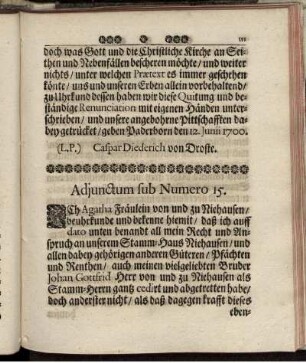 doch was Gott und die Christliche Kirche an Sei-
then und Nebenfällen bescheren möchte/ und weiter
nichts/ unter welchen Prætext es immer geschehen
könte/ uns und unseren Erben allein vorbehaltend/
zu Uhrkund dessen haben wir diese Quitung und be-
ständige Renunciation mit eigenen Händen unter-
schrieben/ und unsere angebohrne Pittschafften da-
bey getrücket/ geben Paderborn den 12. Junii 1700.
(L.P.) Caspar Diederich von Droste.
Adjunctum sub Numero 15.
ICh Agatha Fräulein von und zu Niehausen/
beuhrkunde und bekenne hiemit/ daß ich auff
dato unten benandt all mein Recht und An-
spruch an unserem Stamm-Haus Niehausen/ und
allen dabey gehörigen anderen Güteren/ Pfächten
und Renthen/ auch meinen vielgeliebten Bruder
Johan Gottfrid Herr von und zu Niehausen als
Stamm-Herrn gantz cedirt und abgetretten habe/
doch anderster nicht/ als daß dagegen krafft dieses
eben-